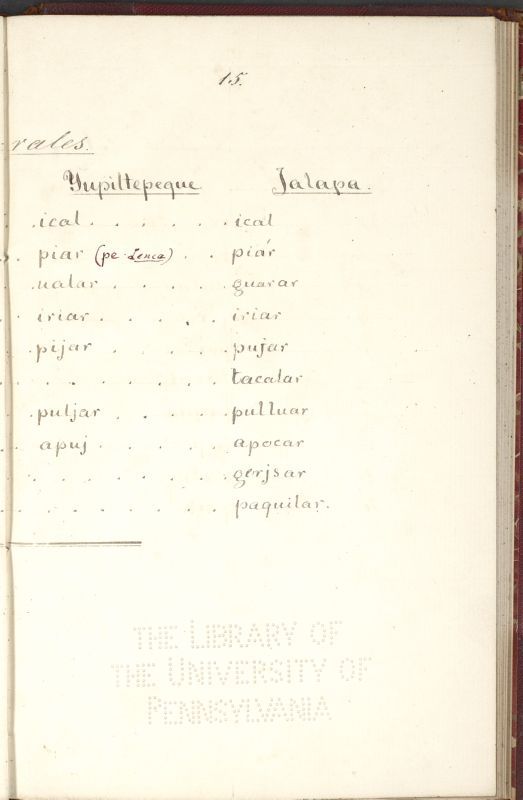 15.
rales.
Yupiltepeque Jalapa.
ical . . . . . ical
piar (pe Lenca) . . piár
ualar . . . . guarar
iriar . . . . iriar
pijar . . . . pujar
. . . . . . . tacalar
puljar . . . . pulluar
apuj . . . . . apocar
. . . . . . . gerjsar
. . . . . . . paquilar.
THE LIBRARY OF
THE UNIVERSITY OF
PENNSYLVANIA